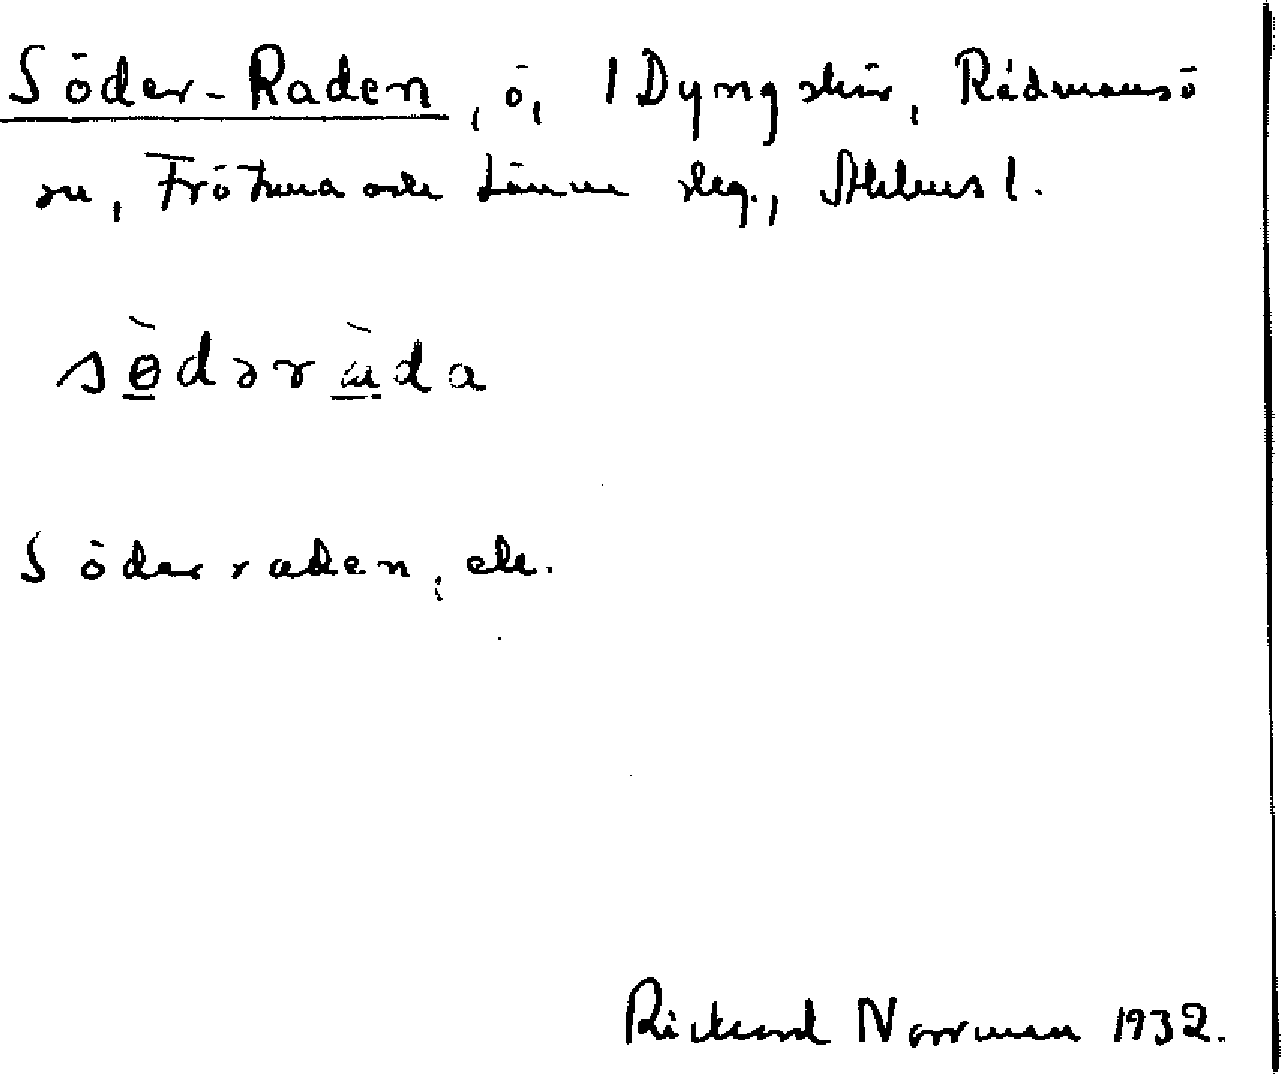 Söder-Raden, ö, 1 Dyngskär, Rådmansö
sn, Frötuna och Länna skg., Sthlms l.
sødərɑda
Söderraden, ek.
Rickard Norrman 1932.